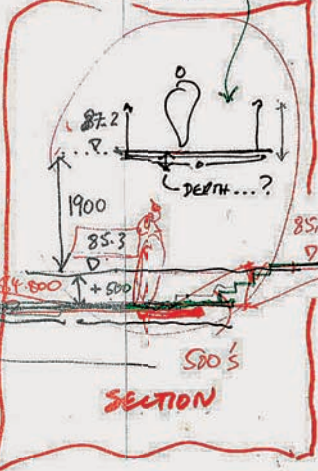 87.2
DEPTH...?
1900
85.3
85
84.800
+500
500's
SECTION